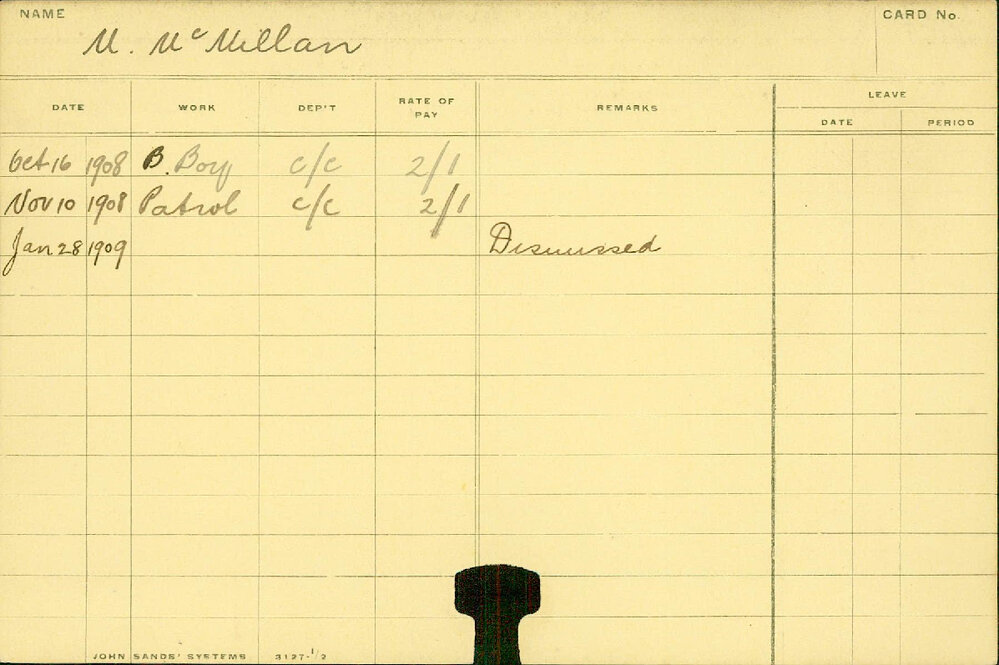 NAME
CARD No.
M. McMillan
DATE WORK DEP'T RATE OF PAY REMARKS LEAVE
DATE PERIOD
Oct 16 1908 B. Boy c/c 2/1
Nov 10 1908 Patrol c/c 2/1
Jan 28 1909 Dismissed
JOHN SANDS' SYSTEMS 3127-1/2